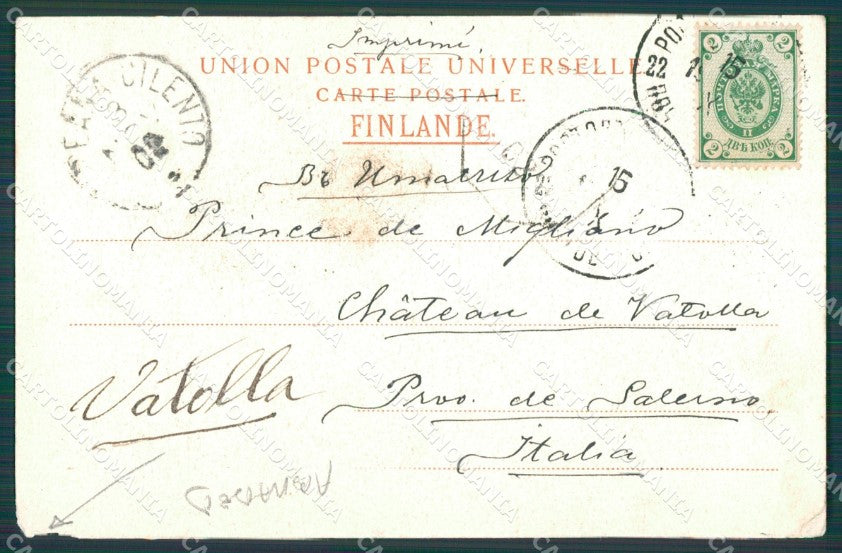 Imprimé.
UNION POSTALE UNIVERSELLE.
CARTE POSTALE.
FINLANDE.
Въ Италію
Prince de Migliano
Château de Vatolla
Vatolla
Prov. de Salerno
Italia
CILENTO
22
15
15
2 2
МАРКА
ДВѢ КОП.
2 2
CARTOLINOMANIA